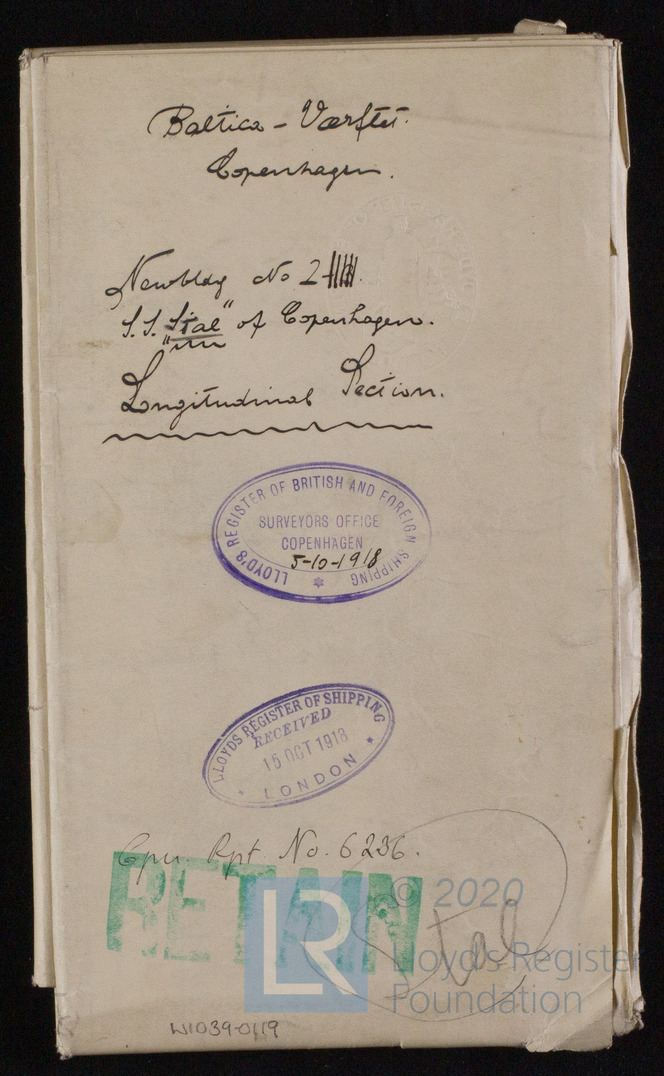 Baltica - Værftet.
Copenhagen.
Newbldg No 2
S.S. "Stal" of Copenhagen.
Longitudinal Section.
LLOYD'S REGISTER OF BRITISH AND FOREIGN SHIPPING
SURVEYORS OFFICE
COPENHAGEN
5-10-1918
LLOYDS REGISTER OF SHIPPING
RECEIVED
15 OCT 1918
LONDON
Cpn Rpt No. 6236.
RETAIN
Stal
LR
© 2020
Lloyd's Register
Foundation
W1039-0119